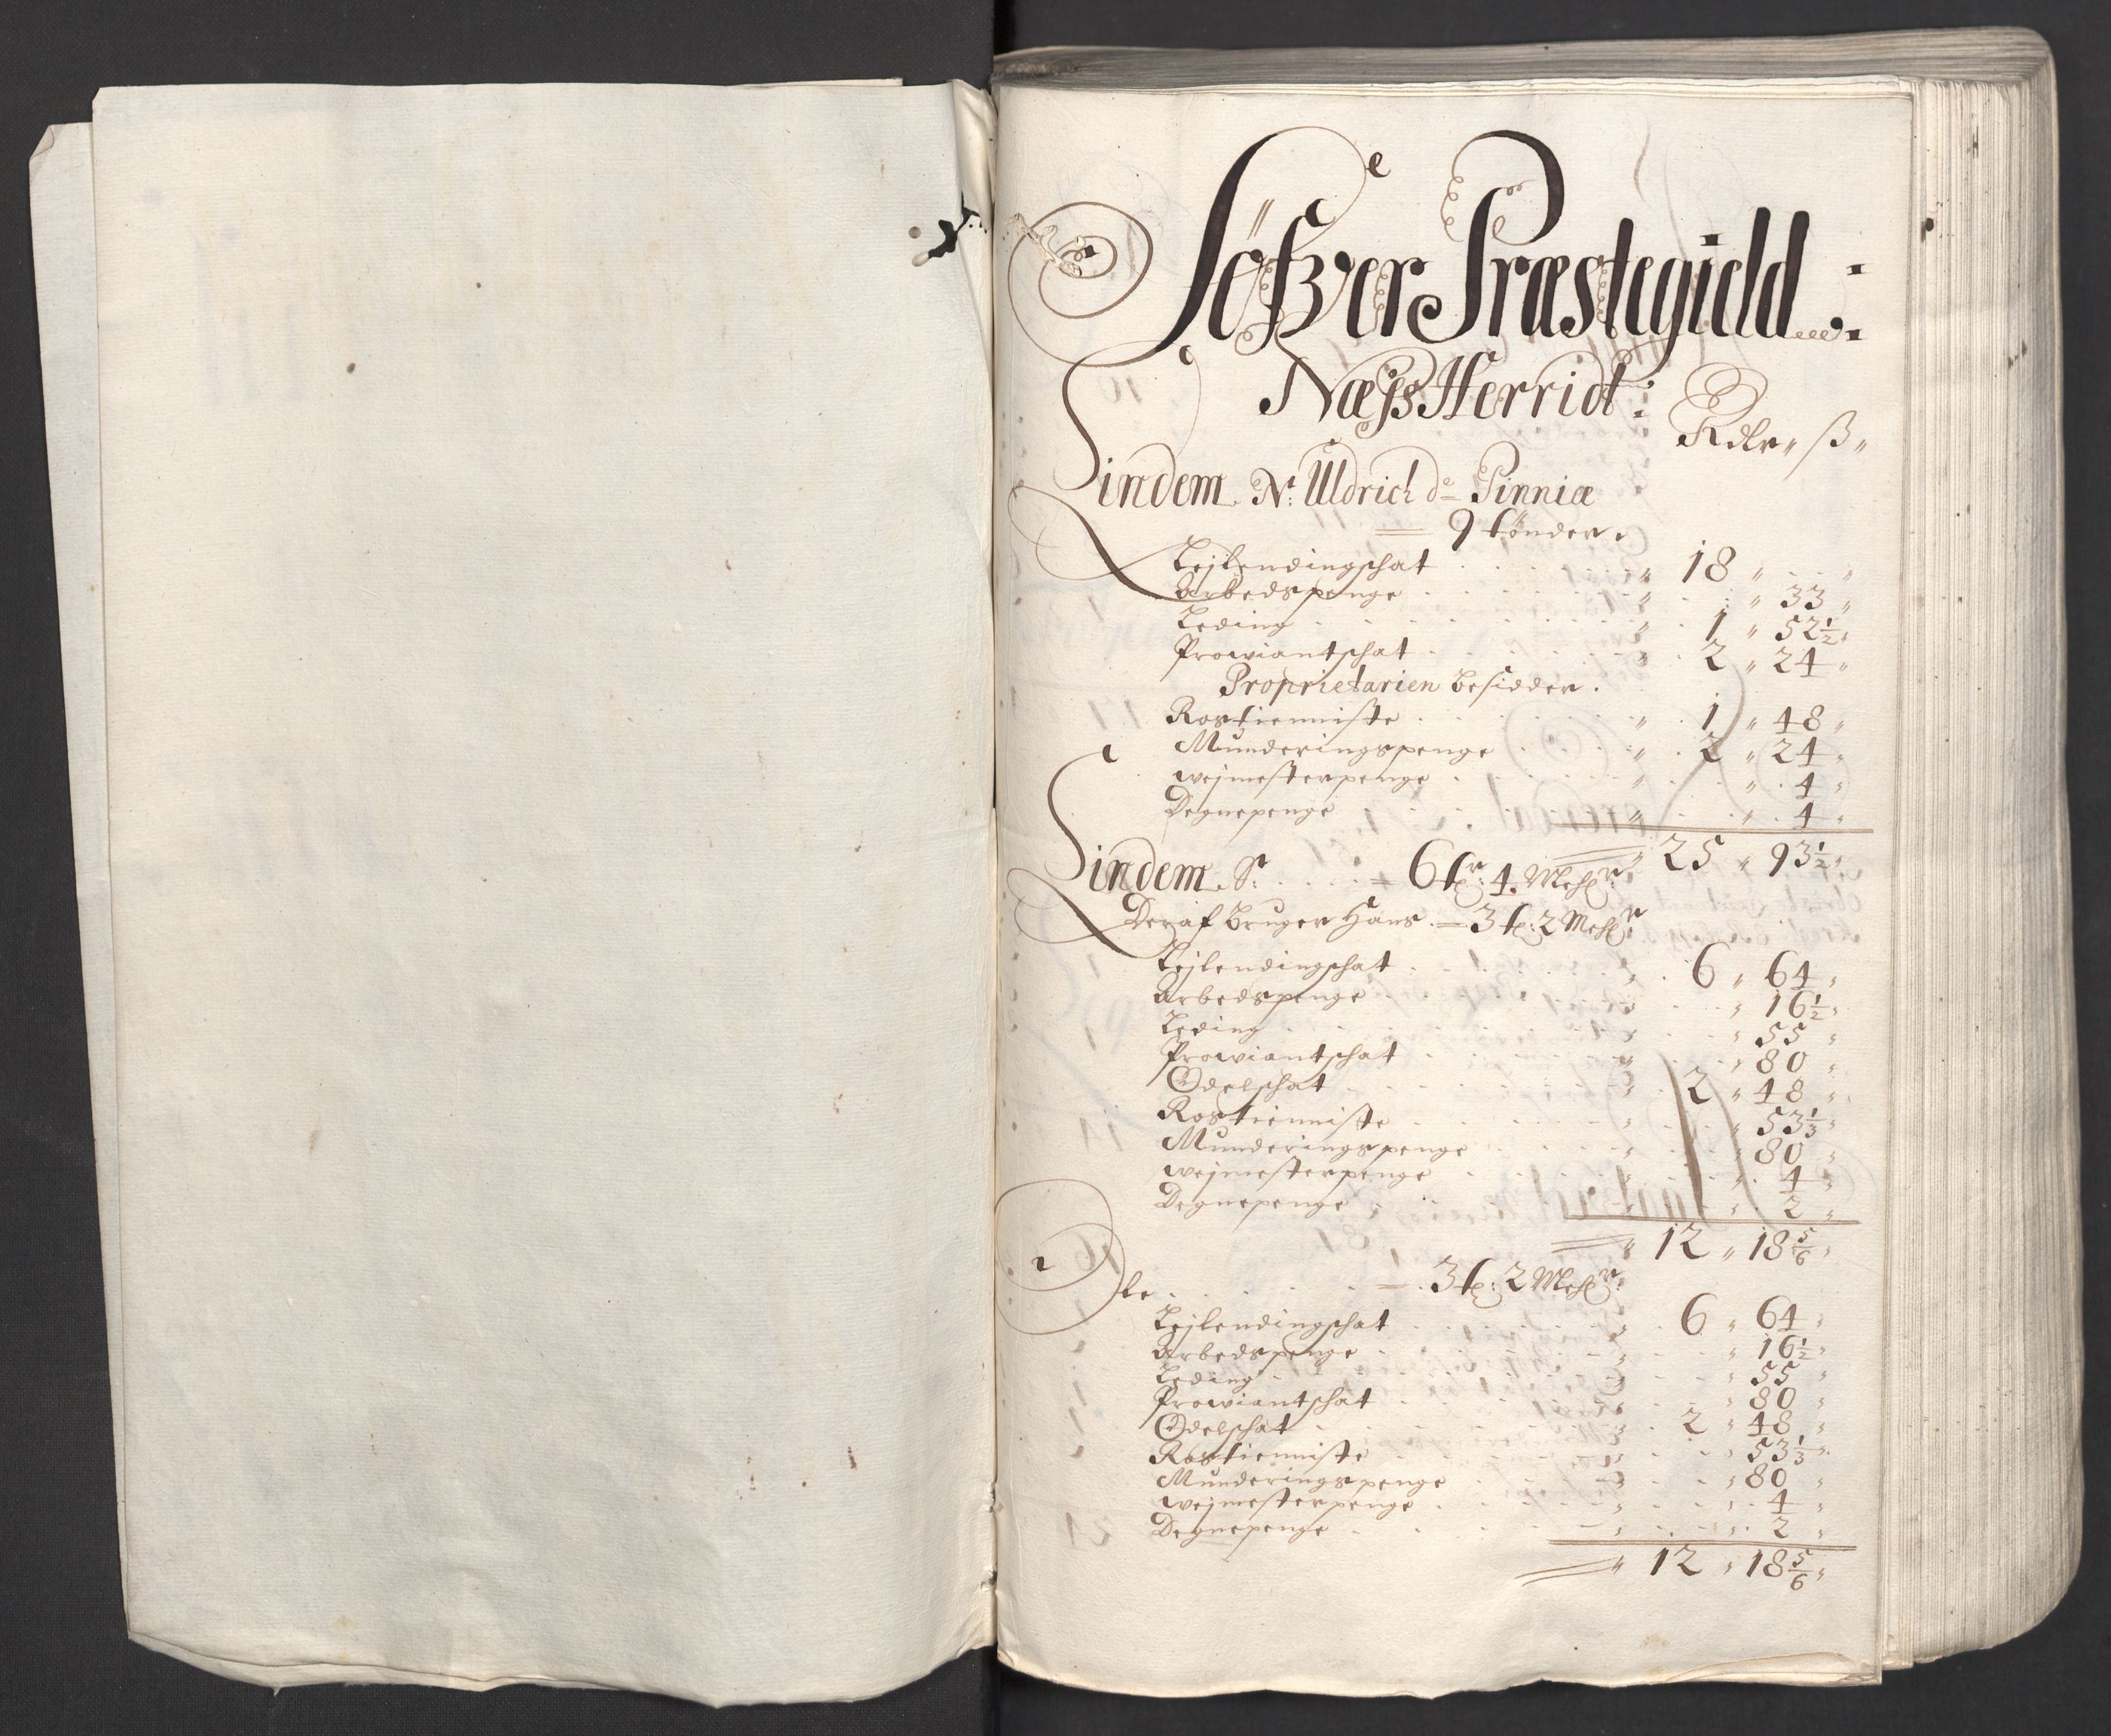 Löfzer Præstegield :
Næss Herridt :
Rdlr „ ß „
Lindem Nr: Uldrich de Pinniæ
= 9 tönder.
Lejlendingschat „ 18 „ „
Arbedspenge „ „ 33 „
Leding „ 1 „ 52½ „
Prowiantschat „ 2 „ 24 „
Proprietarien besidder.
Rostienniste „ 1 „ 48 „
Munderingspenge „ 2 „ 24 „
wejmesterpenge „ „ 4 „
Degnepenge „ „ 4 „
„ 25 „ 93½ „
Lindem Sr: = 6 tr: 4. Mehlr:
Deraf bruger Hans = 3 t: 2 Mehlr:
Lejlendingschat „ 6 „ 64 „
Arbedspenge „ „ 16½ „
Leding „ „ 55 „
Prowiantschat „ „ 80 „
Odelschat „ 2 „ 48 „
Rostienniste „ „ 53⅓ „
Munderingspenge „ „ 80 „
wejmesterpenge „ „ 4 „
Degnepenge „ „ 2 „
„ 12 „ 18⅚ „
Ole = 3 t: 2 Mehlr:
Lejlendingschat „ 6 „ 64 „
Arbedspenge „ „ 16½ „
Leding „ „ 55 „
Prowiantschat „ „ 80 „
Odelschat „ 2 „ 48 „
Rostienniste „ „ 53⅓ „
Munderingspenge „ „ 80 „
wejmesterpenge „ „ 4 „
Degnepenge „ „ 2 „
„ 12 „ 18⅚ „